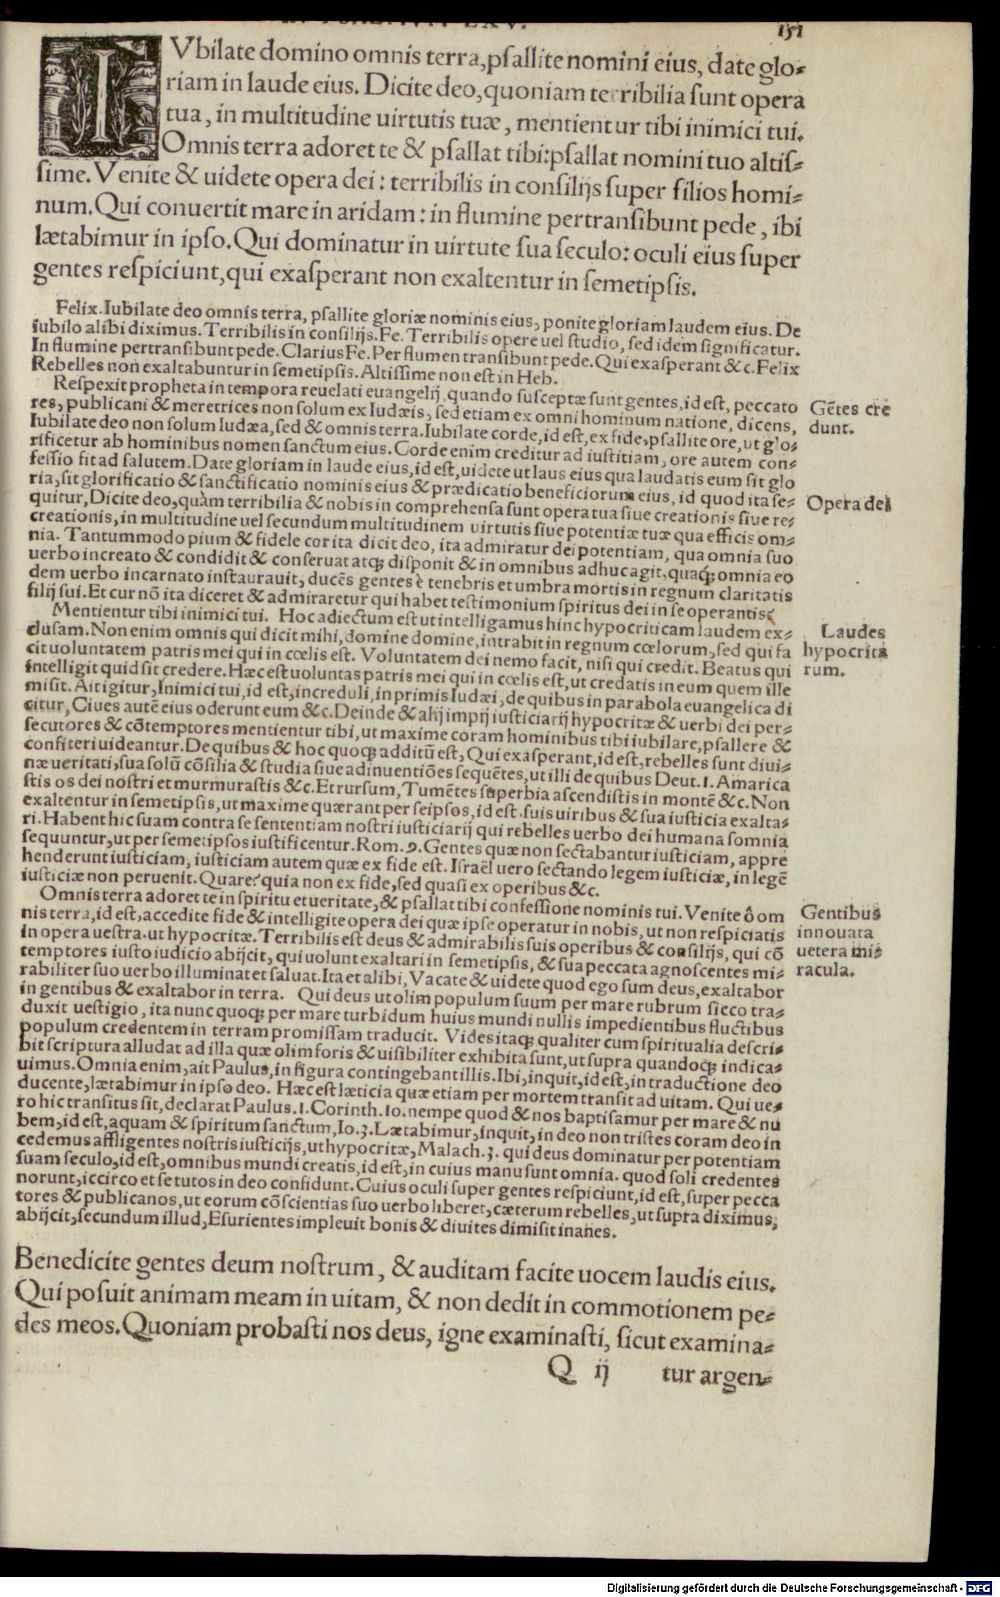 IN PSALMVM LXV.
151
IVbilate domino omnis terra,pſallite nomini eius, date glo⸗
riam in laude eius. Dicite deo,quoniam terribilia ſunt opera
tua, in multitudine uirtutis tuæ, mentientur tibi inimici tui.
Omnis terra adoret te & pſallat tibi:pſallat nomini tuo altiſ⸗
ſime. Venite & uidete opera dei: terribilis in conſilijs ſuper filios homi⸗
num. Qui conuertit mare in aridam: in flumine pertranſibunt pede, ibi
lætabimur in ipſo. Qui dominatur in uirtute ſua ſeculo: oculi eius ſuper
gentes reſpiciunt,qui exaſperant non exaltentur in ſemetipſis.
Felix. Iubilate deo omnis terra, pſallite gloriæ nominis eius, ponite gloriam laudem eius. De
iubilo alibi diximus. Terribilis in conſilijs. Fe. Terribilis opere uel ſtudio, ſed idem ſignificatur.
In flumine pertranſibunt pede. Clarius Fe. Per flumen tranſibunt pede. Qui exaſperant &c. Felix
Rebelles non exaltabuntur in ſemetipſis. Altiſſime non eſt in Heb.
Reſpexit propheta in tempora reuelati euangelij, quando ſuſceptæ ſunt gentes, id eſt, peccato
res, publicani & meretrices non ſolum ex Iudæis, ſed etiam ex omni hominum natione, dicens,
Iubilate deo non ſolum Iudæa, ſed & omnis terra. Iubilate corde, id eſt, ex fide, pſallite ore, ut glo⸗
rificetur ab hominibus nomen ſanctum eius. Corde enim creditur ad iuſtitiam, ore autem con⸗
feſſio fit ad ſalutem. Date gloriam in laude eius, id eſt, uidete ut laus eius qua laudatis eum ſit glo
ria, ſit glorificatio & ſanctificatio nominis eius & prædicatio beneficiorum eius, id quod ita ſe⸗
quitur, Dicite deo, quàm terribilia & nobis in comprehenſa ſunt opera tua ſiue creationis ſiue re⸗
creationis, in multitudine uel ſecundum multitudinem uirtutis ſiue potentiæ tuæ qua efficis om⸗
nia. Tantummodo pium & fidele cor ita dicit deo, ita admiratur dei potentiam, qua omnia ſuo
uerbo increato & condidit & conſeruat atq; diſponit & in omnibus adhuc agit, quaq; omnia eo
dem uerbo incarnato inſtaurauit, ducēs gentes è tenebris et umbra mortis in regnum claritatis
filij ſui. Et cur nō ita diceret & admiraretur qui habet teſtimonium ſpiritus dei in ſe operantis?
Mentientur tibi inimici tui. Hoc adiectum eſt ut intelligamus hinc hypocriticam laudem ex⸗
cluſam. Non enim omnis qui dicit mihi, domine domine, intrabit in regnum cœlorum, ſed qui fa
cit uoluntatem patris mei qui in cœlis eſt. Voluntatem dei nemo facit, niſi qui credit. Beatus qui
intelligit quid ſit credere. Hæc eſt uoluntas patris mei qui in cœlis eſt, ut credatis in eum quem ille
miſit. Ait igitur, Inimici tui, id eſt, increduli, in primis Iudæi, de quibus in parabola euangelica di
citur, Ciues autē eius oderunt eum &c. Deinde & alij impij iuſticiarij hypocritæ & uerbi dei per⸗
ſecutores & cōtemptores mentientur tibi, ut maxime coram hominibus tibi iubilare, pſallere &
confiteri uideantur. De quibus & hoc quoq; additū eſt, Qui exaſperant, id eſt, rebelles ſunt diui⸗
næ ueritati, ſua ſolū cōſilia & ſtudia ſiue adinuentiōes ſequētes, ut illi de quibus Deut. 1. Amarica
ſtis os dei noſtri et murmuraſtis &c. Et rurſum, Tumētes ſuperbia aſcendiſtis in montē &c. Non
exaltentur in ſemetipſis, ut maxime quærant per ſeipſos, id eſt. ſuis uiribus & ſua iuſticia exalta⸗
ri. Habent hic ſuam contra ſe ſententiam noſtri iuſticiarij qui rebelles uerbo dei humana ſomnia
ſequuntur, ut per ſemetipſos iuſtificentur. Rom. 9. Gentes quæ non ſectabantur iuſticiam, appre
henderunt iuſticiam, iuſticiam autem quæ ex fide eſt. Iſraël uero ſectando legem iuſticiæ, in legē
iuſticiæ non peruenit. Quare? quia non ex fide, ſed quaſi ex operibus &c.
Omnis terra adoret te in ſpiritu et ueritate, & pſallat tibi confeſſione nominis tui. Venite ô om
nis terra, id eſt, accedite fide & intelligite opera dei quæ ipſe operatur in nobis, ut non reſpiciatis
in opera ueſtra. ut hypocritæ. Terribilis eſt deus & admirabilis ſuis operibus & conſilijs, qui cō
temptores iuſto iudicio abijcit, qui uolunt exaltari in ſemetipſis, & ſua peccata agnoſcentes mi⸗
rabiliter ſuo uerbo illuminat et ſaluat. Ita et alibi, Vacate & uidete quod ego ſum deus, exaltabor
in gentibus & exaltabor in terra. Qui deus ut olim populum ſuum per mare rubrum ſicco tra⸗
duxit ueſtigio, ita nunc quoq; per mare turbidum huius mundi nullis impedientibus fluctibus
populum credentem in terram promiſſam traducit. Vides itaq; qualiter cum ſpiritualia deſcri⸗
bit ſcriptura alludat ad illa quæ olim foris & uiſibiliter exhibita ſunt, ut ſupra quandoq; indica⸗
uimus. Omnia enim, ait Paulus, in figura contingebant illis. Ibi, inquit, id eſt, in traductione deo
ducente, lætabimur in ipſo deo. Hæc eſt læticia quæ etiam per mortem tranſit ad uitam. Qui ue⸗
ro hic tranſitus ſit, declarat Paulus. 1. Corinth. 10. nempe quod & nos baptiſamur per mare & nu
bem, id eſt, aquam & ſpiritum ſanctum, Io. 3. Lætabimur, inquit, in deo non triſtes coram deo in
cedemus affligentes noſtris iuſticijs, ut hypocritæ, Malach. 3. qui deus dominatur per potentiam
ſuam ſeculo, id eſt, omnibus mundi creatis, id eſt, in cuius manu ſunt omnia. quod ſoli credentes
norunt, iccirco et ſe tutos in deo confidunt. Cuius oculi ſuper gentes reſpiciunt, id eſt, ſuper pecca
tores & publicanos, ut eorum cōſcientias ſuo uerbo liberet, cæterum rebelles, ut ſupra diximus,
abijcit, ſecundum illud, Eſurientes impleuit bonis & diuites dimiſit inanes.
Gētes cre
dunt.
Opera dei
Laudes
hypocrita
rum.
Gentibus
innouata
uetera mi⸗
racula.
Benedicite gentes deum noſtrum, & auditam facite uocem laudis eius.
Qui poſuit animam meam in uitam, & non dedit in commotionem pe⸗
des meos. Quoniam probaſti nos deus, igne examinaſti, ſicut examina⸗
Q ij tur argen⸗
Digitalisierung gefördert durch die Deutsche Forschungsgemeinschaft - DFG